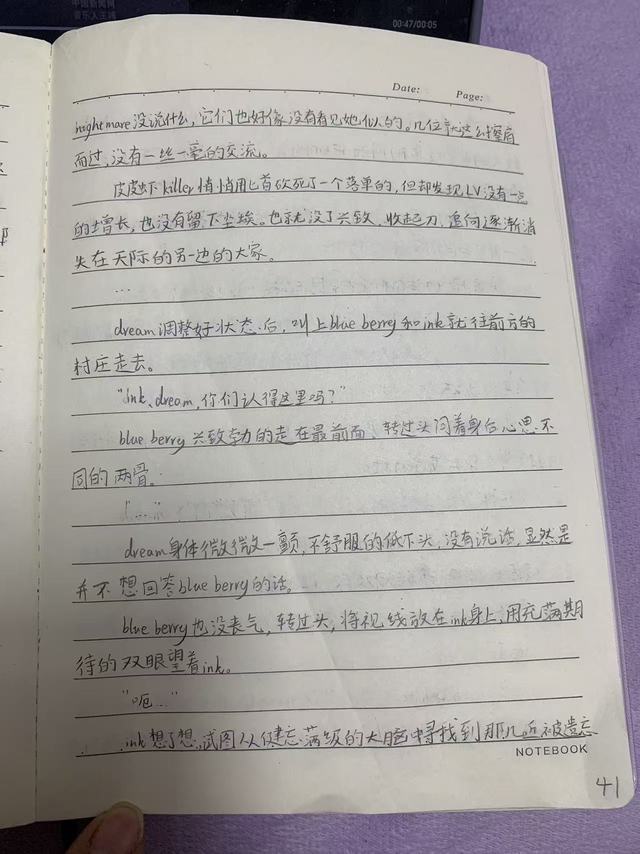 中国新闻网
音乐人王晴
00:47/00:05
Date: Page:
nightmare没说什么,它们也好像没有看见她似的。几位就这么擦肩
而过,没有一丝一毫的交流。
皮皮虾killer悄悄用匕首砍死了一个落单的,但却发现LV没有一点
的增长,也没有留下尘埃。也就没了兴致,收起刀,追向逐渐消
失在天际的另一边的大家。
...
dream调整好状态后,叫上blue berry和ink就往前方的
村庄走去。
"ink、dream,你们认得这里吗?"
blue berry兴致勃的走在最前面、转过头问着身后心思不
同的两骨。
"……"
dream身体微微微一颤,不舒服的低下头,没有说话,显然是
并不想回答blue berry的话。
blue berry也没丧气,转过头,将视线放在ink身上,用充满期
待的双眼望着ink。
"呃…"
ink想了想,试图从健忘满级的大脑中寻找到那几近被遗忘
NOTEBOOK
41